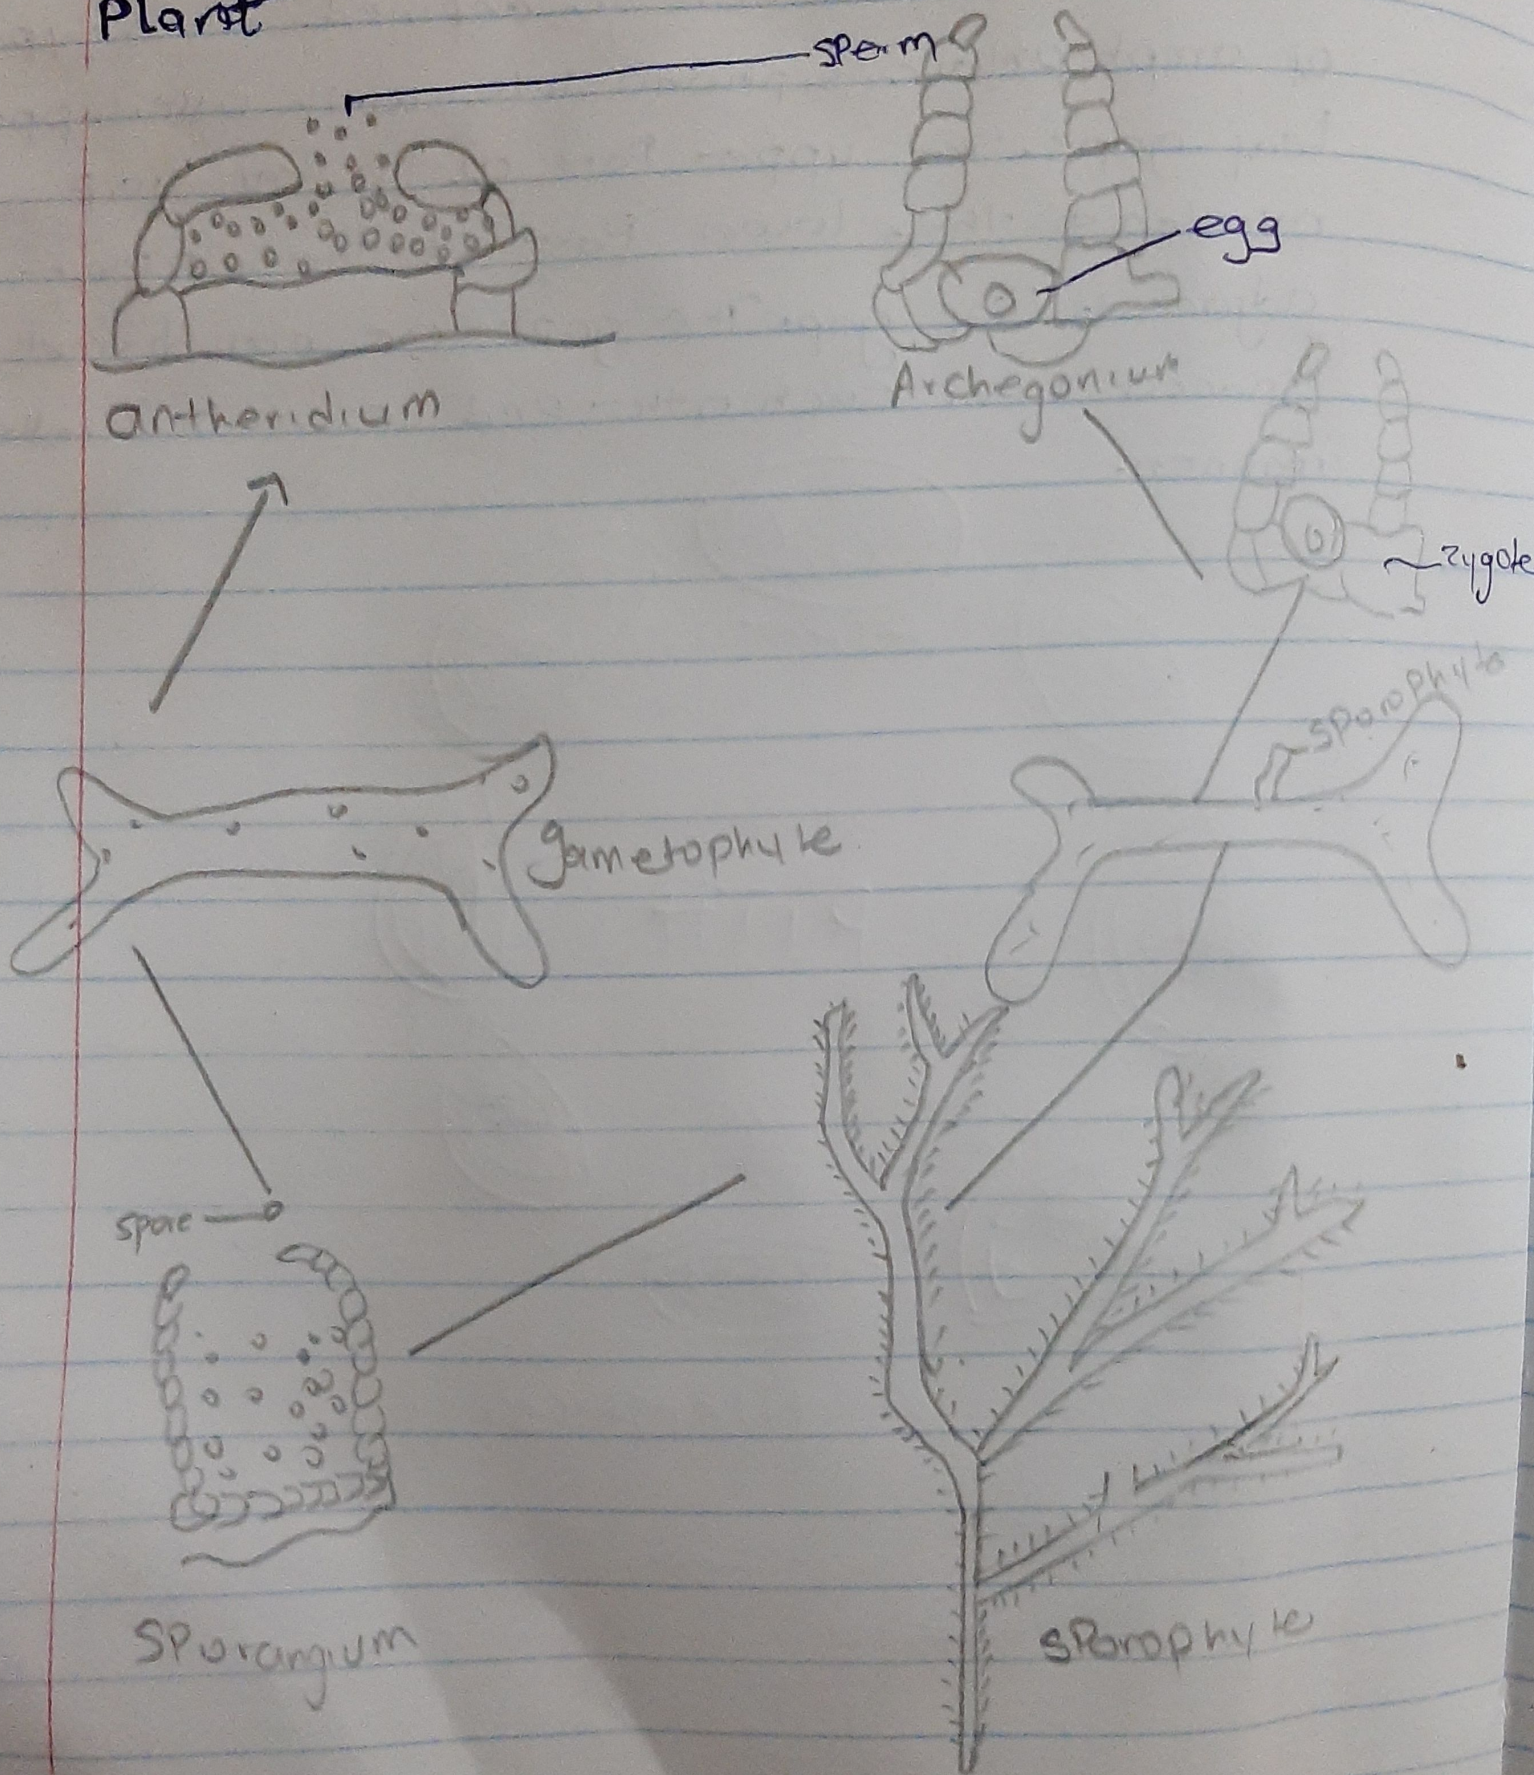 Plant
sperm
egg
antheridium
Archegonium
zygote
sporophyte
gametophyte
spore
Sporangium
sporophyte